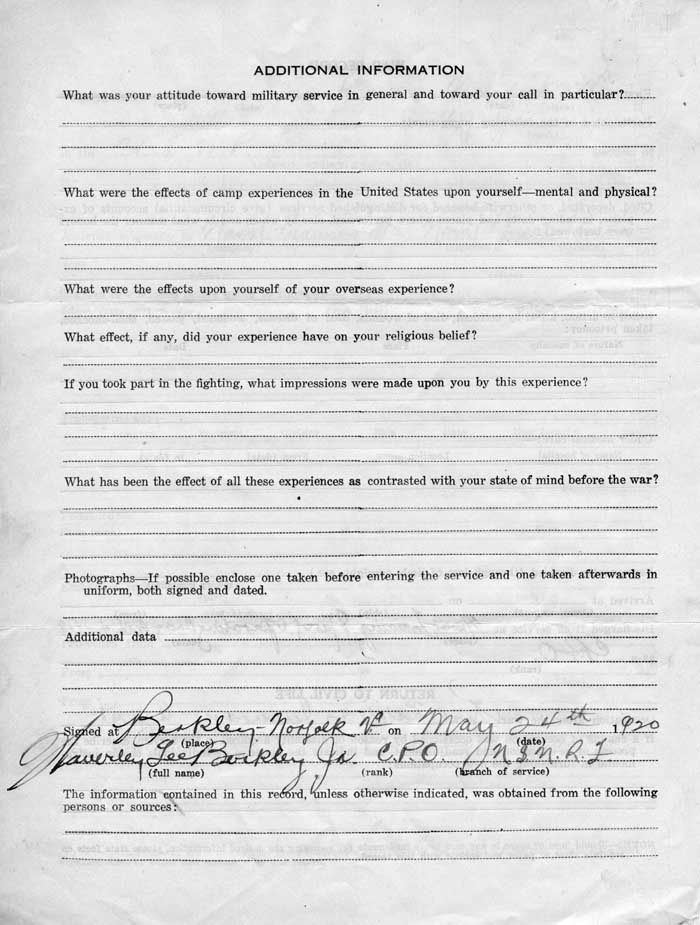 ADDITIONAL INFORMATION
What was your attitude toward military service in general and toward your call in particular?
What were the effects of camp experiences in the United States upon yourself—mental and physical?
What were the effects upon yourself of your overseas experience?
What effect, if any, did your experience have on your religious belief?
If you took part in the fighting, what impressions were made upon you by this experience?
What has been the effect of all these experiences as contrasted with your state of mind before the war?
Photographs—If possible enclose one taken before entering the service and one taken afterwards in
uniform, both signed and dated.
Additional data
Signed at Berkley-Norfolk Va on May 24th 1920
(place) (date)
Waverley Lee Barkley Jr. C.P.O.
(full name) (rank) (branch of service)
The information contained in this record, unless otherwise indicated, was obtained from the following
persons or sources: